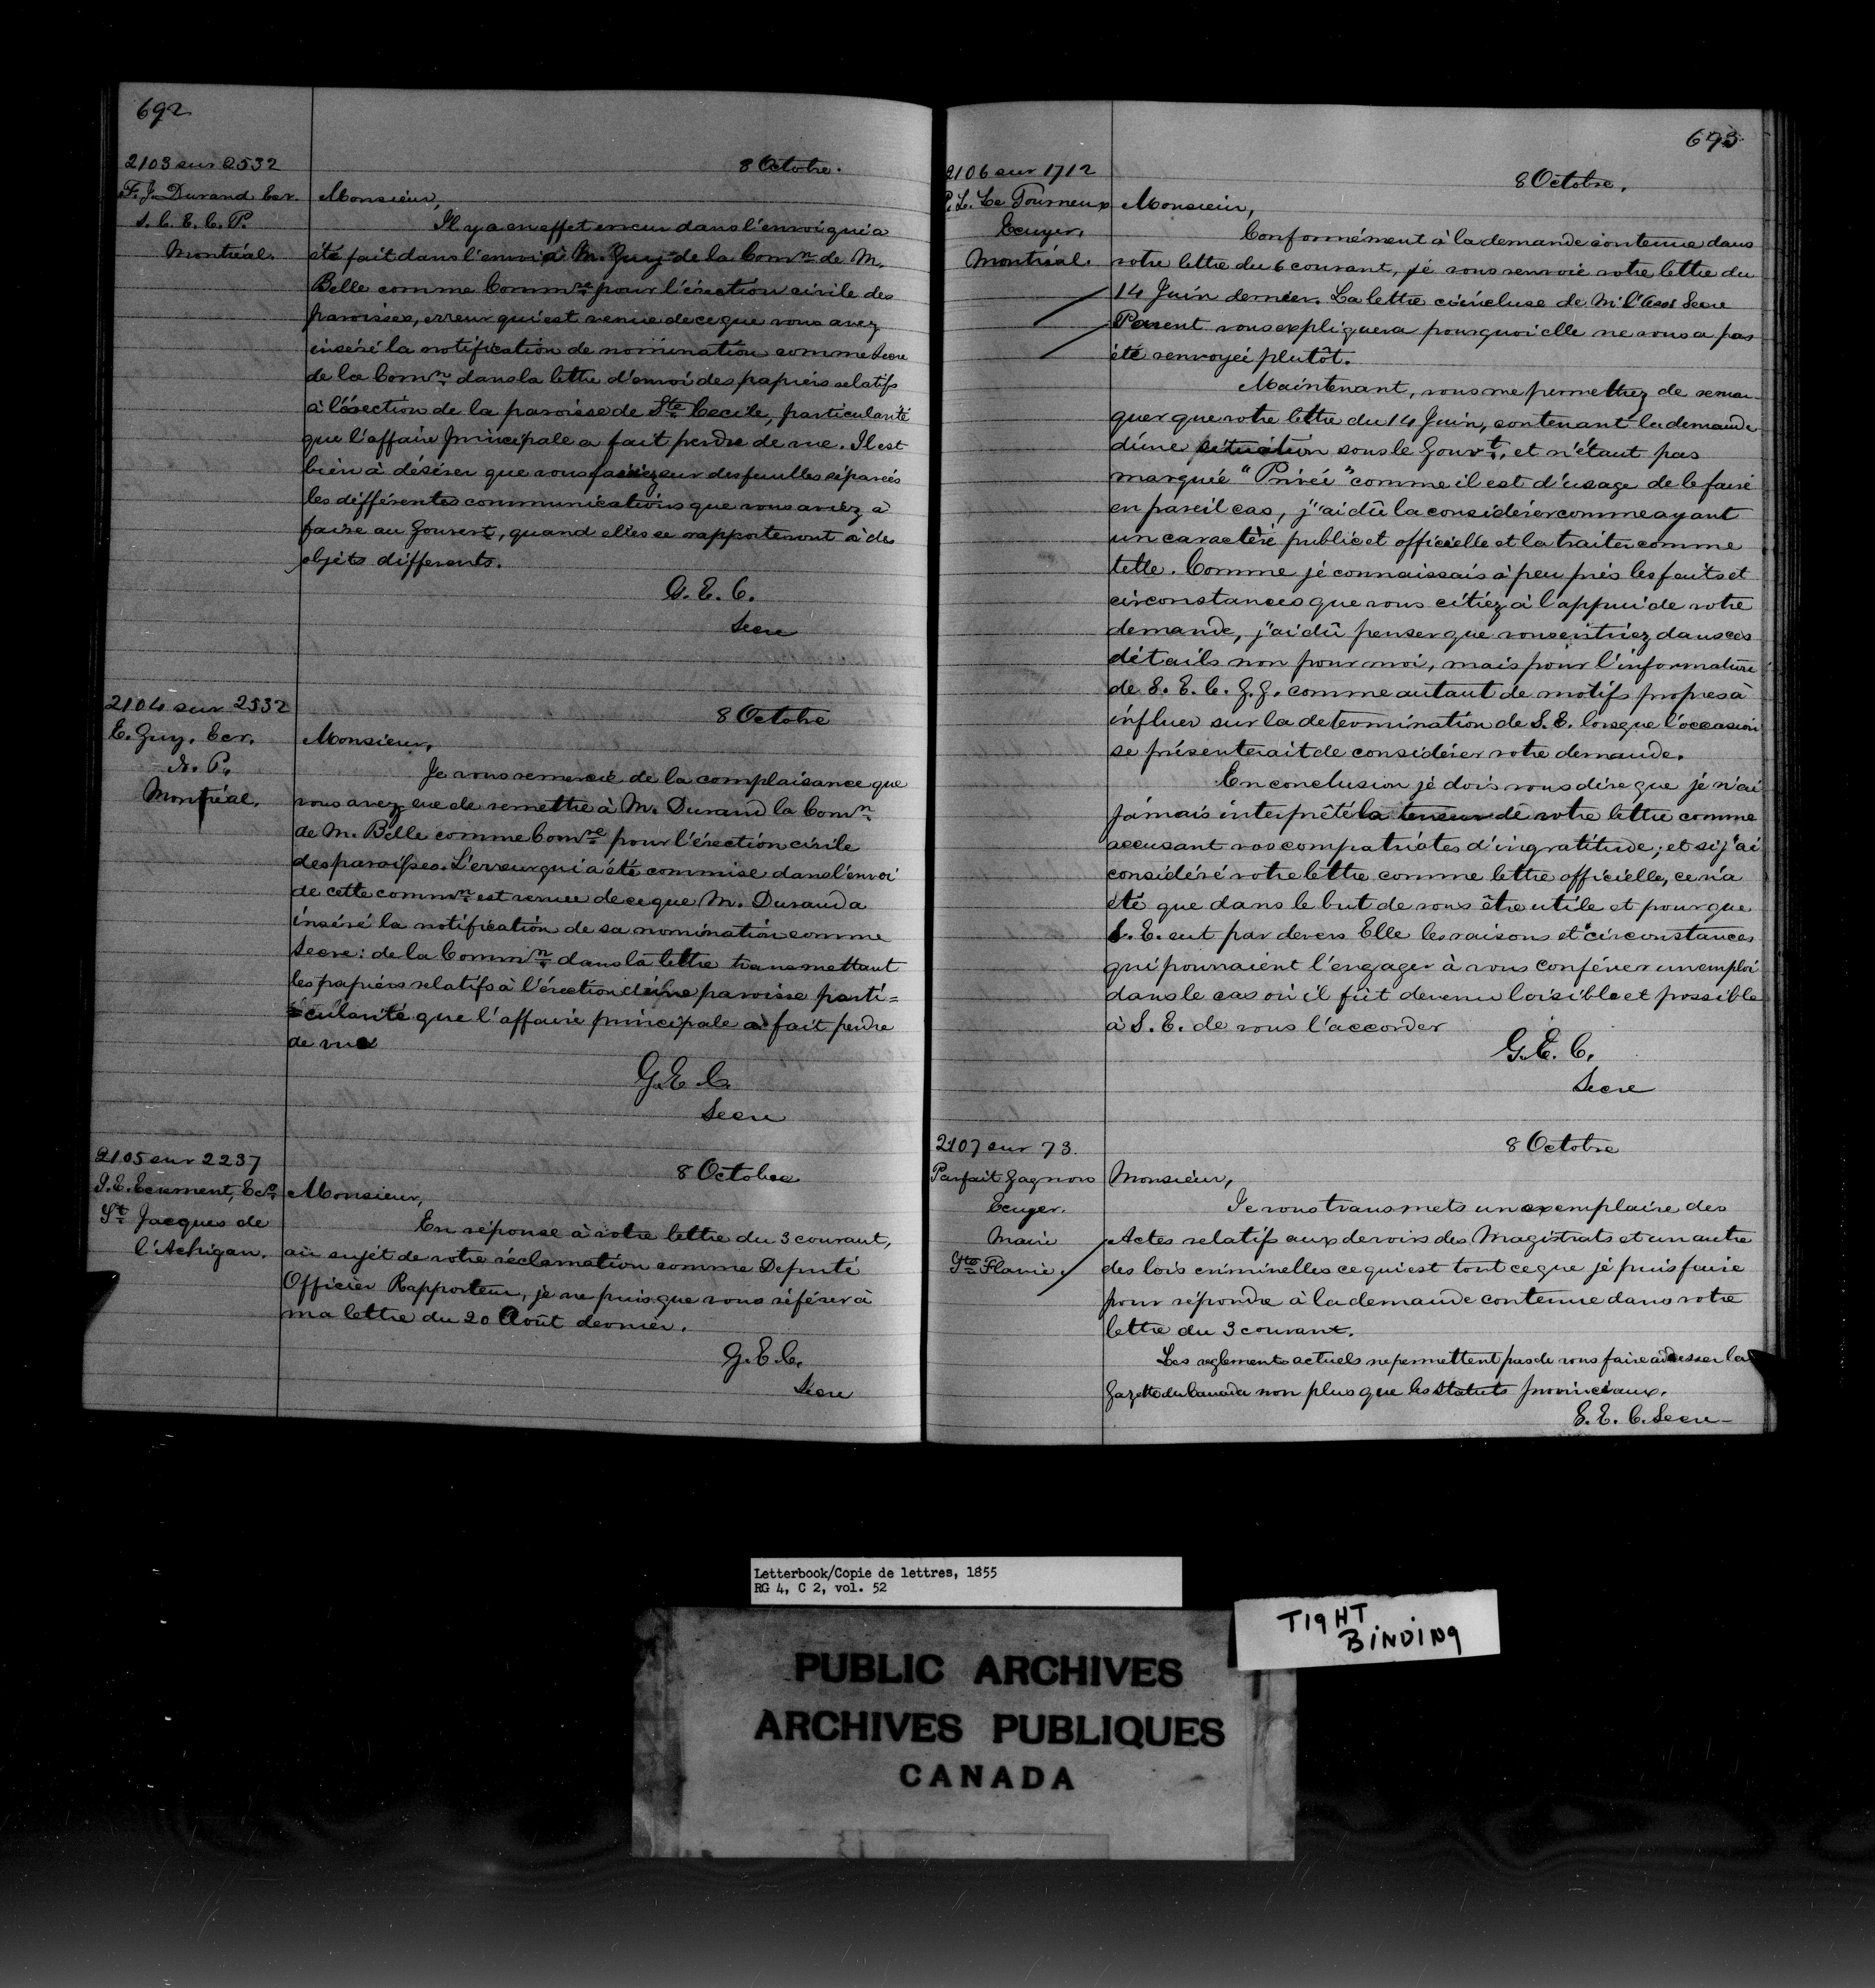 692
2103 sur 2532
F. J. Durand Ecr.
S. C. E. C. P.
Montréal.
8 Octobre.
Monsieur,
Il y a en effet erreur dans l'envoi qui a
été fait dans l'envoi à M. Guy de la Comn de M.
Belle comme Commre pour l'érection civile des
paroisses, erreur qui est venue de ce que vous avez
inséré la notification de nomination comme Secre
de la Comn dans la lettre d'envoi des papiers relatifs
à l'érection de la paroisse de Ste Cecile, particularité
que l'affaire principale a fait perdre de vue. Il est
bien à désirer que vous fassiez sur des feuilles séparées
les différentes communications que vous aviez à
faire au Gouvert, quand elles se rapporteront à des
objets differents.
G. E. C.
Secre
2104 sur 2532
E. Guy, Ecr.
N. P.
Montréal.
8 Octobre
Monsieur,
Je vous remercie de la complaisance que
vous avez eue de remettre à M. Durand la Comn
de M. Belle comme Comre pour l'érection civile
des paroisses. L'erreur qui a été commise dans l'envoi
de cette commn est venue de ce que M. Durand a
inséré la notification de sa nomination comme
Secre: de la Commn dans la lettre transmettant
les papiers relatifs à l'érection d'une paroisse parti=
=cularité que l'affaire principale a fait perdre
de vue
G. E. C.
Secre
2105 sur 2237
J. E. Ecrement, Ecr
St Jacques de
l'Achigan.
8 Octobre
Monsieur,
En réponse à votre lettre du 3 courant,
au sujét de votre réclamation comme Deputé
Officier Rapporteur, je ne puis que vous référer à
ma lettre du 20 Août dernier.
G. E. C.
Secre
693
2106 sur 1712
P. L. Le Tourneux
Ecuyer.
Montréal.
8 Octobre.
Monsieur,
Conformément à la demande contenue dans
votre lettre du 6 courant, je vous renvoie votre lettre du
14 Juin dernier. La lettre ci incluse de Mr l'Asst Secre
Parent vous expliquera pourquoi elle ne vous a pas
été renvoyée plutôt.
Maintenant, vous me permettrez de remar-
quer que votre lettre du 14 Juin, contenant la demande
d'une situation sous le Gouvt, et n'étant pas
marquée "Privée" comme il est d'usage de le faire
en pareil cas, j'ai dû la considérer comme ayant
un caractère public et officielle et la traiter comme
telle. Comme je connaissais à peu près les faits et
circonstances que vous citiez à l'appui de votre
demande, j'ai dû penser que vous entriez dans ces
détails non pour moi, mais pour l'information
de S. E. le G. G. comme autant de motifs propres à
influer sur la determination de S. E. lorsque l'occasion
se présenterait de considérer votre demande.
En conclusion je dois vous dire que je n'ai
jamais interprêté la teneur de votre lettre comme
accusant vos compatriotes d'ingratitude; et si j'ai
considéré votre lettre comme lettre officielle, ce n'a
été que dans le but de vous être utile et pour que
S. E. eut par devers Elle les raisons et circonstances
qui pourraient l'engager à vous conférer un emploi
dans le cas où il fût devenu loisible et possible
à S. E. de vous l'accorder
G. E. C.
Secre
2107 sur 73.
Parfait Gagnon
Ecuyer.
Maire
Ste Flavie.
8 Octobre
Monsieur,
Je vous transmets un exemplaire des
Actes relatifs aux devoirs des Magistrats et un autre
des lois criminelles ce qui est tout ce que je puis faire
pour répondre à la demande contenue dans votre
lettre du 3 courant.
Les reglements actuels ne permettent pas de vous faire adresser la
Gazette du Canada non plus que les Statuts provinciaux.
G. E. C. Secre
Letterbook/Copie de lettres, 1855
RG 4, C 2, vol. 52
TIGHT
BINDING
PUBLIC ARCHIVES
ARCHIVES PUBLIQUES
CANADA